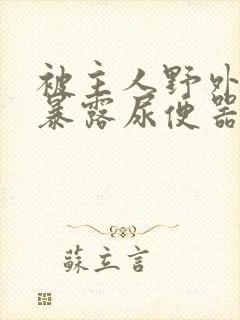 被主人野外
暴露尿便器
蘇立言